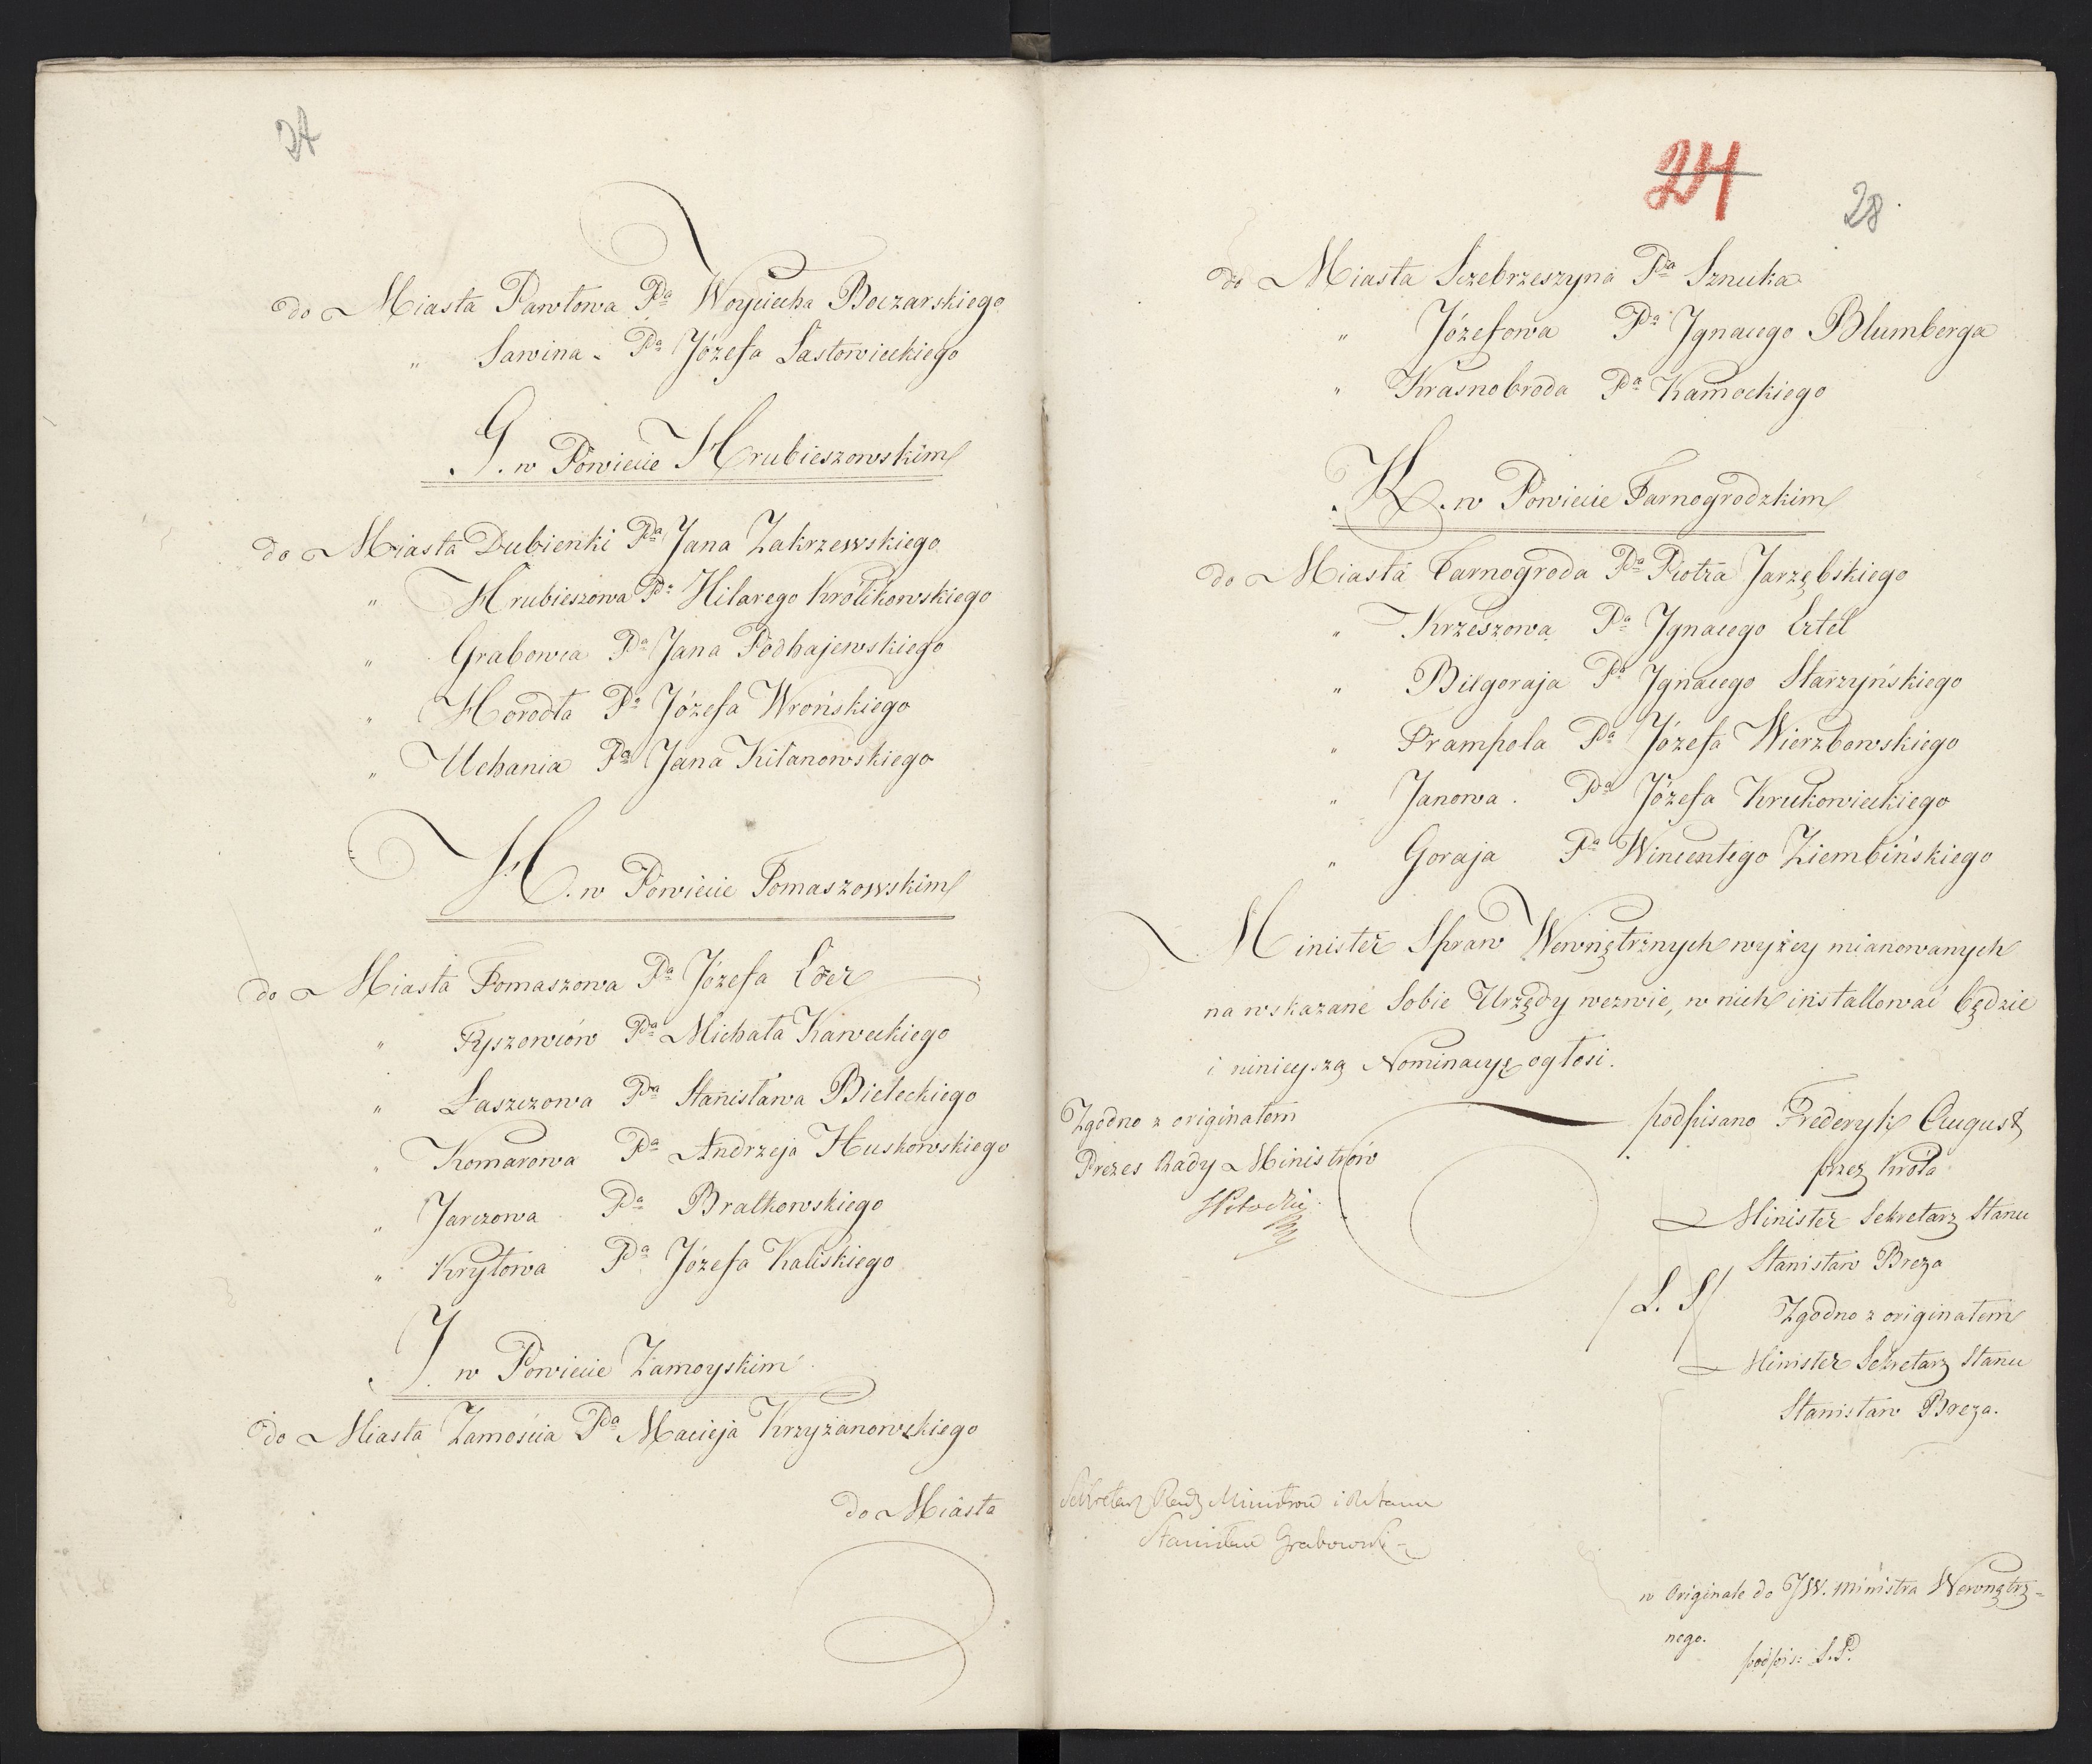 24
do Miasta Pawłowa Pa Woyciecha Boczarskiego
" Sawina - Pa Józefa Łastowieckiego
G. w Powiecie Hrubieszowskim
do Miasta Dubienki Pa Jana Zakrzewskiego
" Hrubieszowa Pa Hilarego Królikowskiego
" Grabowca Pa Jana Podhajewskiego
" Horodła Pa Józefa Wrońskiego
" Uchania Pa Jana Kitanowskiego
H. w Powiecie Tomaszowskim
do Miasta Tomaszowa Pa Józefa
" Tyszowców Pa Michała Kaweckiego
" Łaszczowa Pa Stanisława Bieleckiego
" Komarowa Pa Andrzeja Huskowskiego
" Jarczowa Pa Bratkowskiego
" Kryłowa Pa Józefa Kaliskiego
I. w Powiecie Zamoyskim
do Miasta Zamościa Pa Macieja Krzyżanowskiego
do Miasta
24
28
do Miasta Sczebrzeszyna Pa Sznuka
" Józefowa Pa Ignacego Blumberga
" Krasnobroda Pa Kamockiego
K. w Powiecie Tarnogrodzkim
do Miasta Tarnogroda Pa Piotra Jarzębskiego
" Krzeszowa Pa Ignacego Ertel
" Biłgoraja Pa Ignacego Starzyńskiego
" Frampola Pa Józefa Wierzbowskiego
" Janowa . Pa Józefa Krukowieckiego
" Goraja Pa Wincentego Ziembińskiego
Minister Spraw Wewnętrznych wyżey mianowanych
na wskazane Sobie Urzędy wezwie, w nich installować będzie
i ninieyszą Nominacyę ogłosi.
Zgodno z originałem
Prezes Rady Ministrów
podpisano Frederyk August
przez Króla
Minister Sekretarz Stanu
Stanisław Breza
/L. S/
Zgodno z originałem
Minister Sekretarz Stanu
Stanisław Breza.
Sekretarz Rady Ministrów i R Stanu
Stanisław Grabowski
w Originale do JW. Ministra Wewnątrz=
nego.
podpis: S.P.